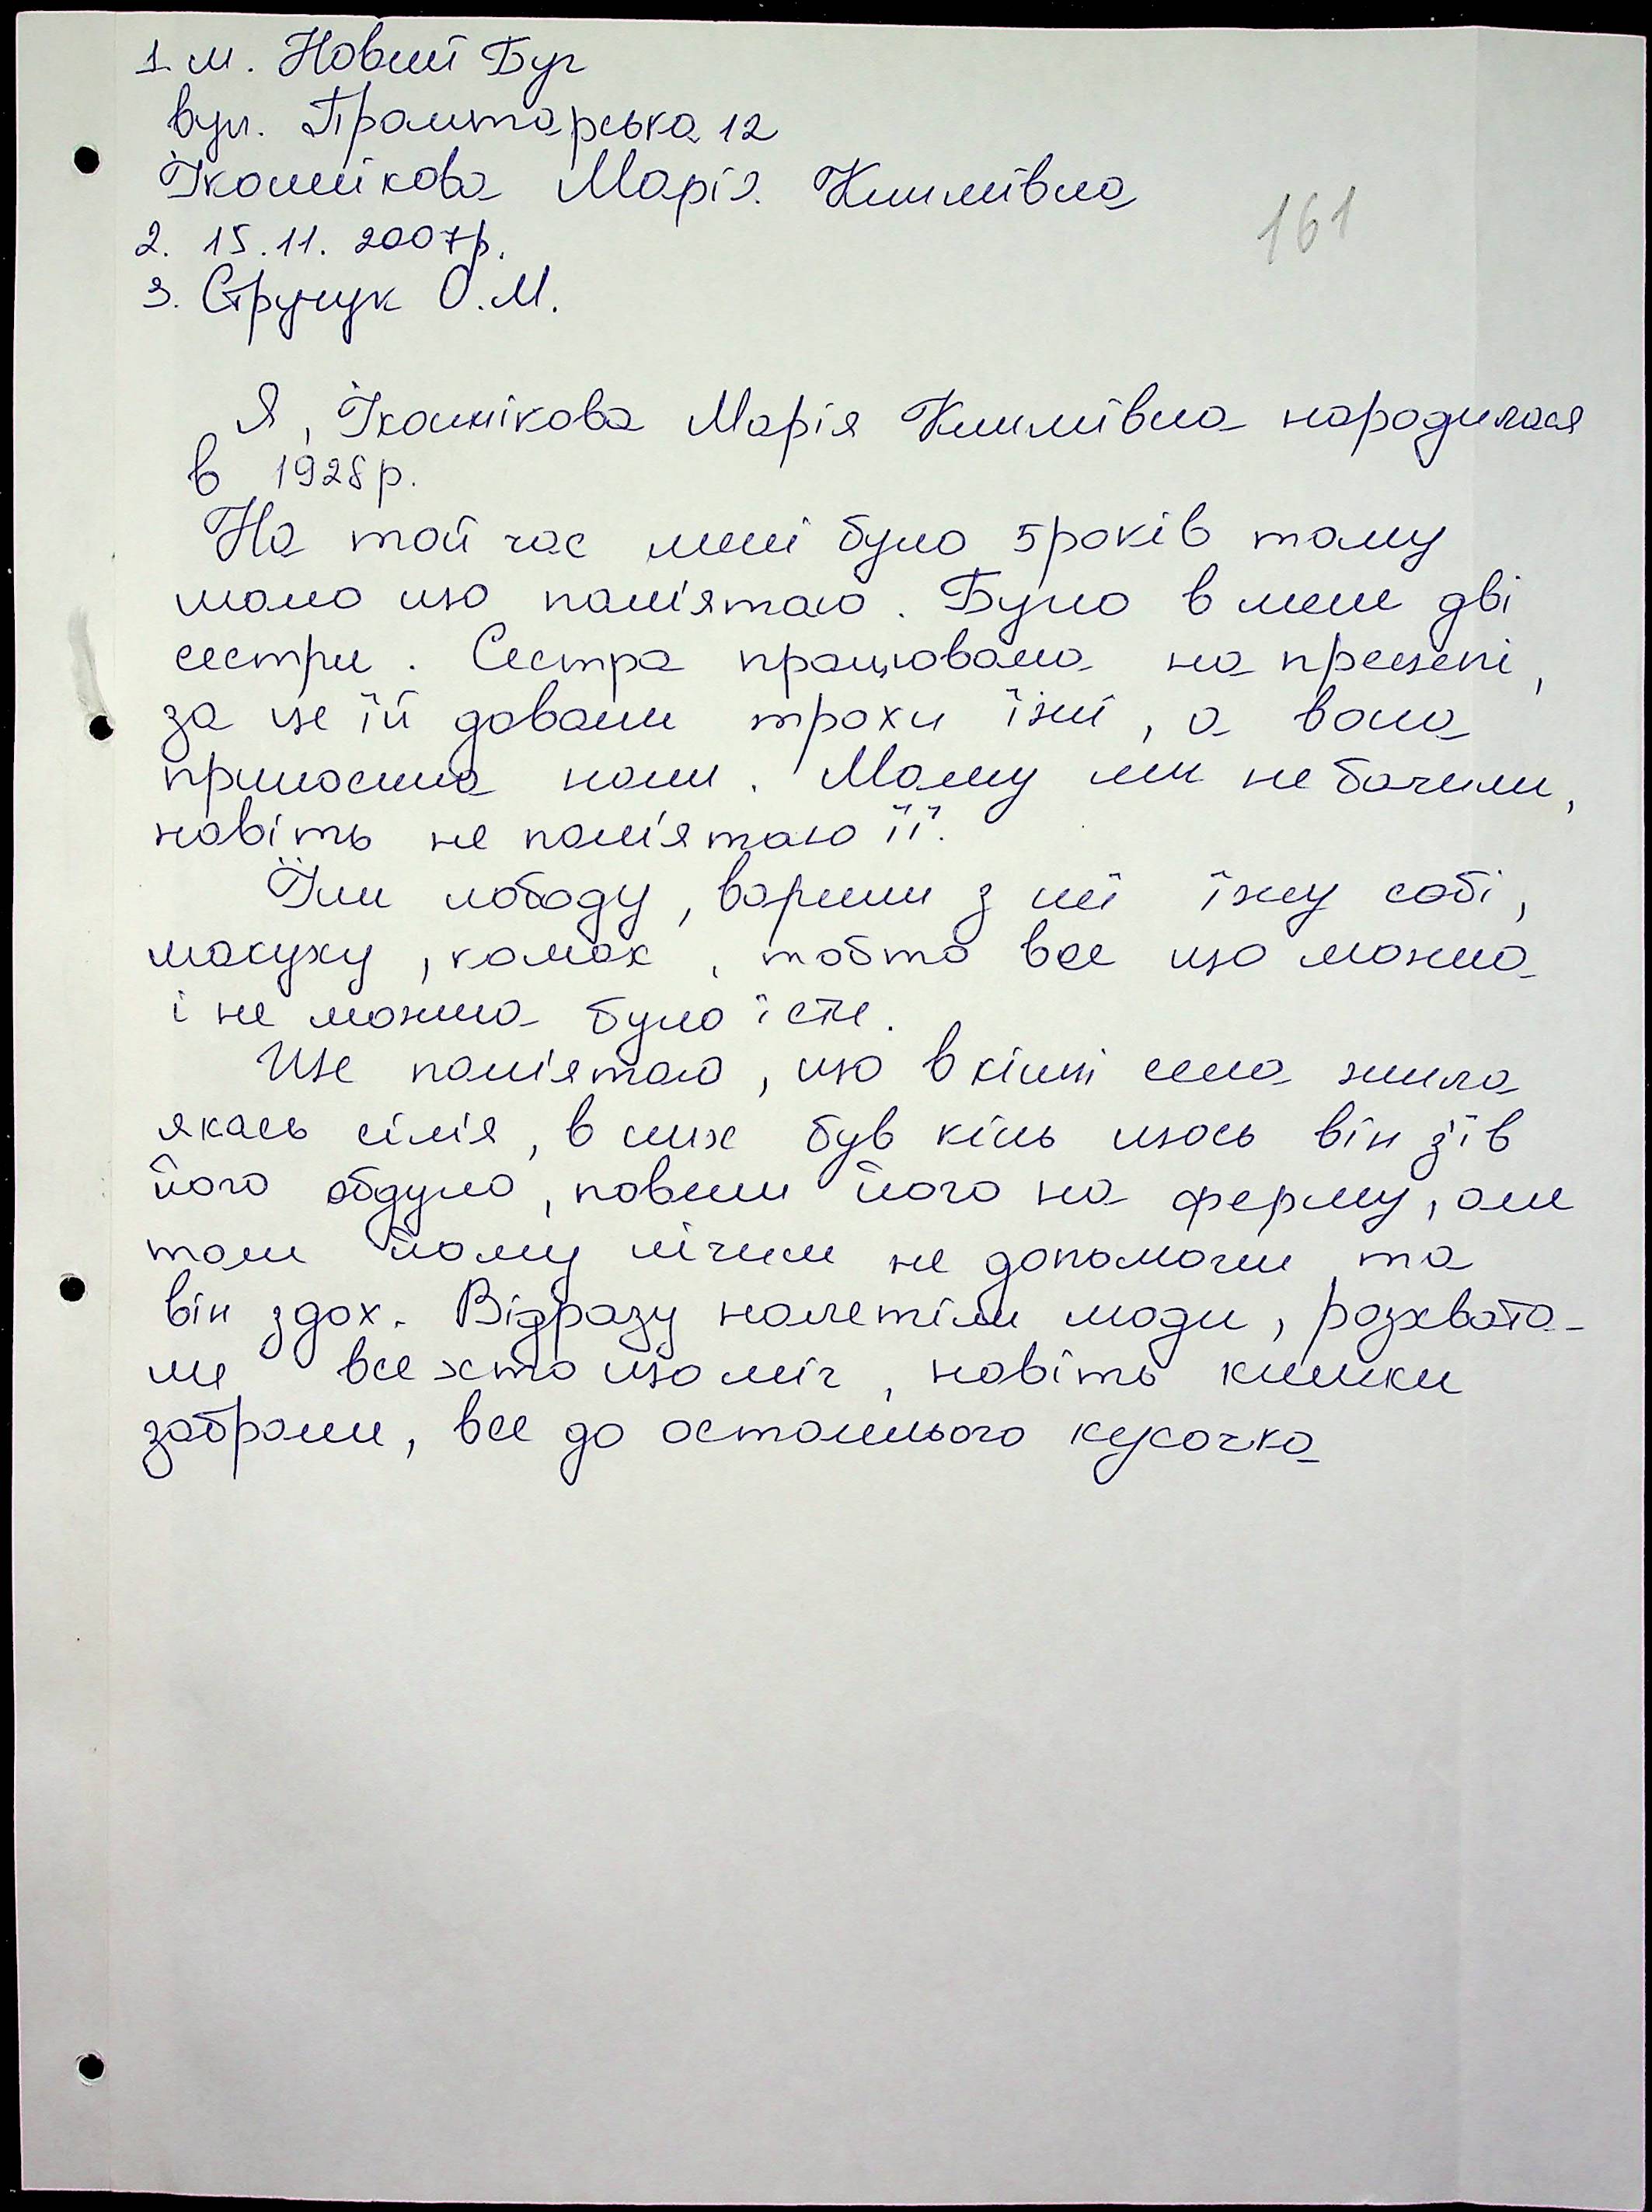 1. м. Новий Буг
вул. Пролетарська 12
Іконнікова Марія Климівна
161
2. 15.11.2007р.
3. Стручук О.М.
Я, Іконнікова Марія Климівна народилася
в 1928р.
На той час мені було 5 років тому
мало що пам'ятаю. Було в мене дві
сестри. Сестра працювала на прицепі,
за це їй давали трохи їжі, а вона
приносила нам. Маму ми не бачили,
навіть не пам'ятаю її.
Їли лободу, варили з неї їжу собі,
макуху, комах, тобто все що можна
і не можна було їсти.
Ще пам'ятаю, що в кінці села жила
якась сім'я, в них був кінь щось він з'їв
його обдуло, повели його на ферму, але
там йому нічим не допомогли та
він здох. Відразу налетіли люди, розхвата-
ли все хто що міг, навіть кишки
забрали, все до останнього кусочка